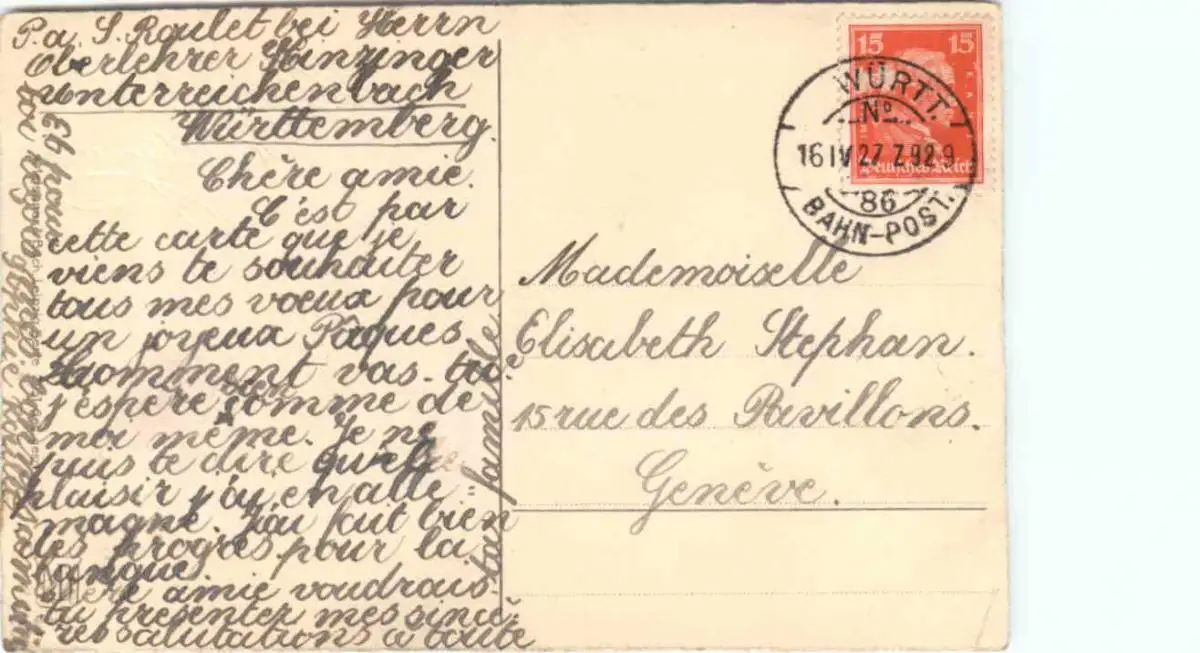 P. a. S. Roulet bei Herrn
Oberlehrer Hinzinger
Unterreichenbach
Württemberg.
Chère amie.
C'est par
cette carte que je
viens te souhaiter
tous mes vœux pour
un joyeux Pâques.
Comment vas-tu?
j'espère bien comme de
moi même. Je ne
puis te dire quel
plaisir j'ai en alle
magne. J'ai fait bien
des progrès pour la
langue.
Chère amie voudrais
tu présenter mes sincè
res salutations a toute
ta famille
Et pour
toi reçois
15 15
Deutsches Reich
WÜRTT.
No
16 IV 27 Z 92 9
86
BAHN-POST.
Mademoiselle
Elisabeth Stephan.
15 rue des Pavillons.
Genève.